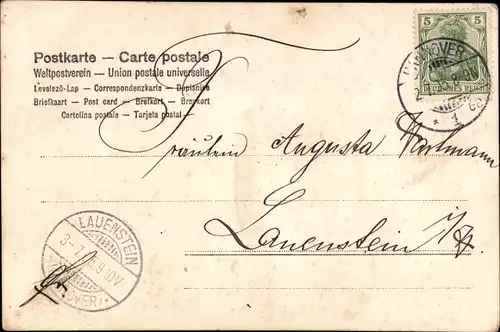 5
DEUTSCHES REICH
HANNOVER
* 1
Postkarte — Carte postale
Weltpostverein — Union postale universelle
Levelező-Lap — Correspondenzkarte — Dopisnice
Briefkaart — Post card — Brefkort — Brevkort
Cartolina postale — Tarjeta postal
Fräulein Augusta Wortmann
Lauenstein i/H
LAUENSTEIN